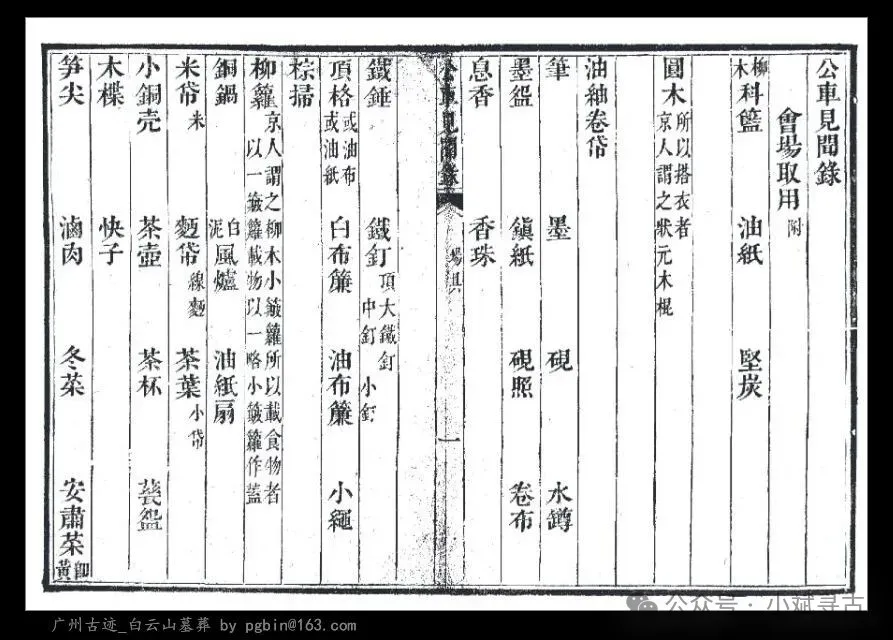 公車見聞錄
會場取用附
柳木科籃 油紙 堅炭
圓木所以搭衣者京人謂之狀元木棍
油紬卷帒
筆 墨 硯 水罇
墨盌 鎮紙 硯照 卷布
息香 香珠
公車見聞錄 場具 一
鐵錘 鐵釘頂大鐵釘中釘小釘
頂格或油布或油紙 白布簾 油布簾 小繩
棕掃
柳籮京人謂之柳木小簸籮所以載食物者以一簸籮載物以一略小簸籮作蓋
銅鍋 白泥風爐 油紙扇
米帒米 麪帒線麪 茶葉小帒
小銅壳 茶壺 茶杯 甆盌
木楪 快子
笋尖 滷肉 冬菜 安肅菜卽黃
公众号·小斌寻古
广州古迹_白云山墓葬 by pgbin@163.com